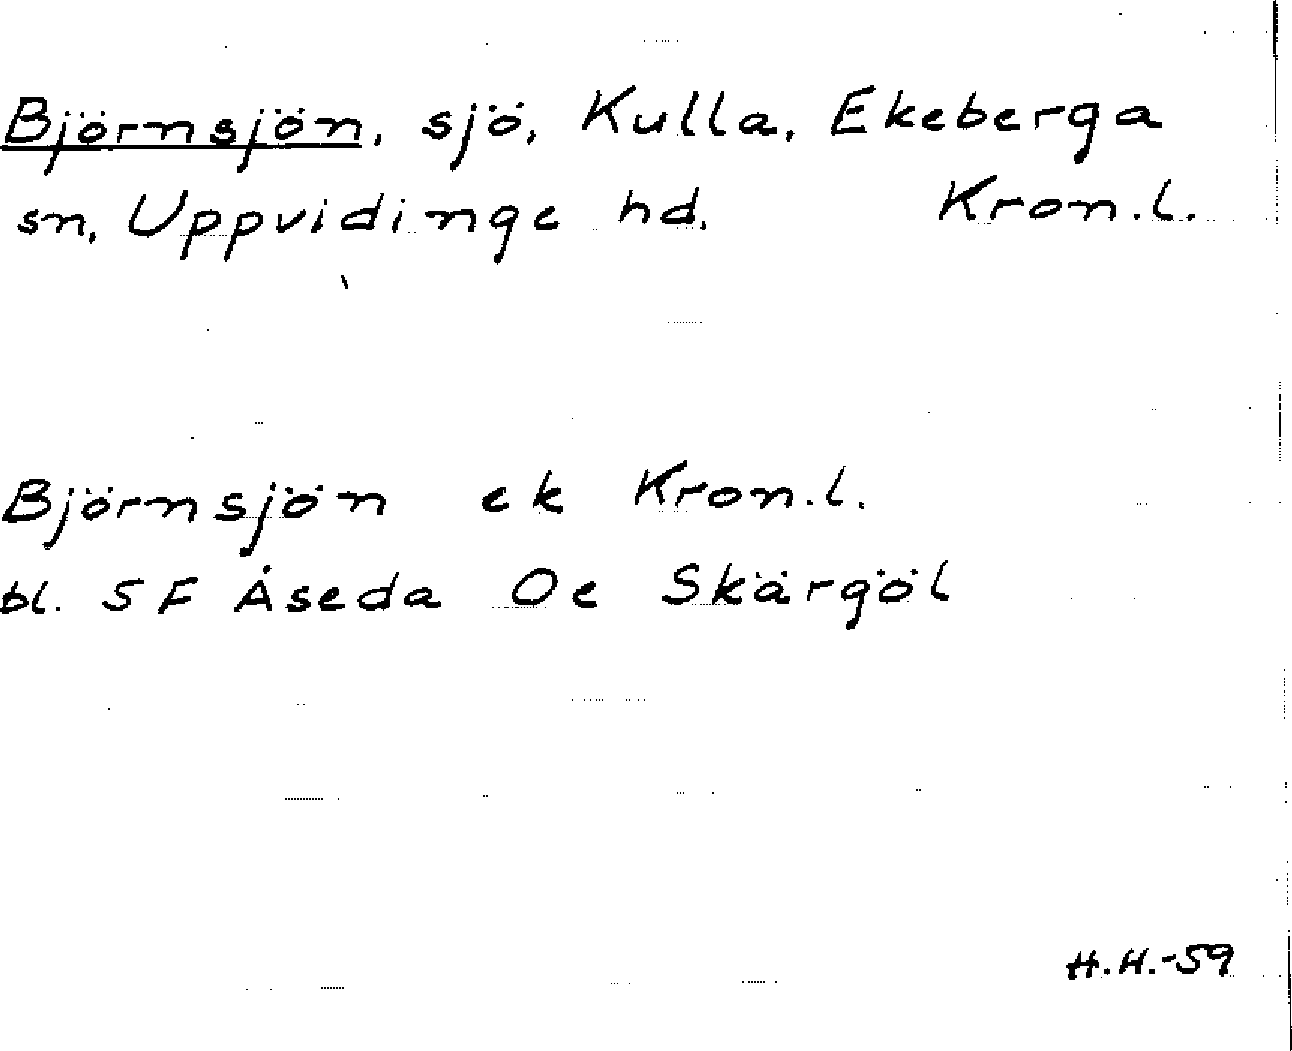 Björnsjön, sjö, Kulla, Ekeberga
sn, Uppvidinge hd. Kron.l.
Björnsjön ek Kron.l.
bl. 5F Åseda Oe Skärgöl
H.H.-59